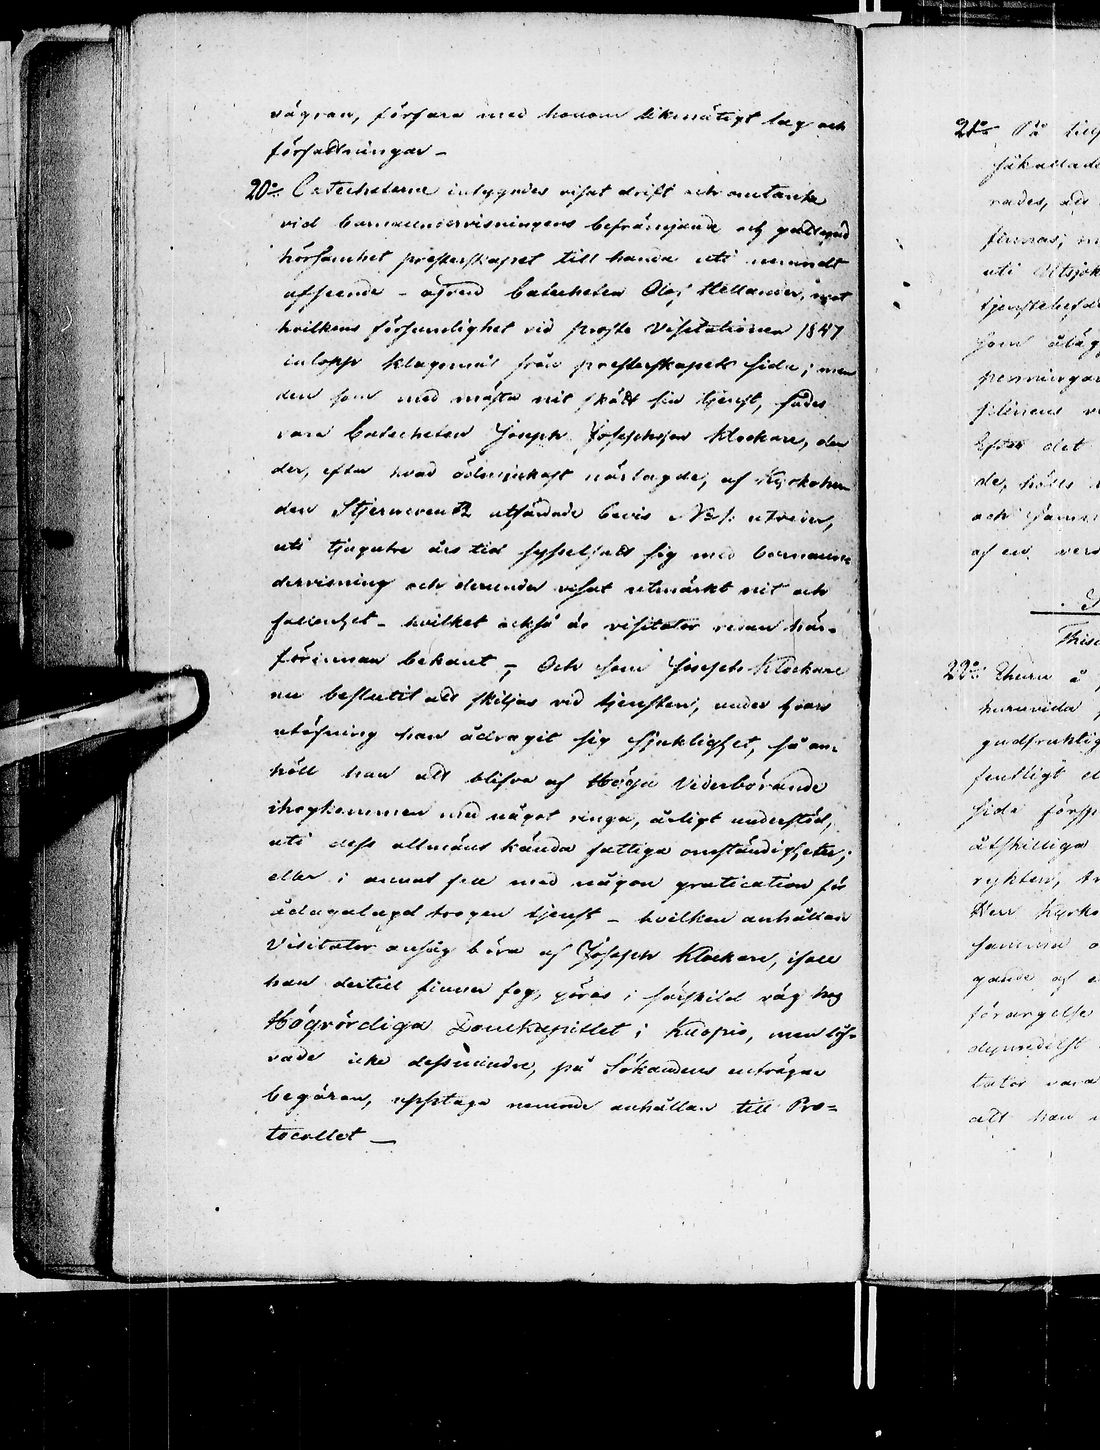 vägran, förfara med honom likmätigt lag och
författningar –
20:o Catecheterne intygades visat drift och omtanka
vid barnaundervisningens befrämjande och gådt
hörsamhet presterskapet till handa uti nemndt
afseende – Catecheten Olof Hellander, mot
hvilkens försumlighet vid proste Visitationen 1847
inlopp klagomål från presterskapets sida; men
den som med mästa nit skött sin tjenst, sades
vara Catecheten Joseph Josephsson Klockare, den
der, efter hvad ödmjukast närlagde, af Kyrkoher-
den Stjernvenz utfärdade bevis utviser,
uti tjugutre års tid sysselsatt sig med barnaun-
dervisning och derunder visat utmärkt nit och
fallenhet – hvilket också är visitator redan här-
förinnan bekant –; Och som Joseph Klockare
nu beslutit att skiljas vid tjensten, under hvars
utöfning han ådragit sig sjuklighet, så an-
höll han att blifva af Höga Vederbörande
ihogkommen med något ringa, årligt understöd,
uti dess allmäns kända fattiga omständigheter;
eller i annat fall med någon gratication för
ådagalagd trogen tjenst – hvilken anhållan
Visitator ansåg böra af Joseph Klockare, ifall
han dertill finner fog, göras i särskild väg hos
Högvördiga Domkapitlet i Kuopio, men löf-
vade icke dessmindre, på Sökandens enträgna
begäran, upptaga nemnde anhållan till Pro=
tocollet –
21:o På
såkallade
rades, att
finnas; m
uti Utsjok
som åläg
penningar
Efter det
de, hölls
och
af en
22:o Huru
huruvida
gudfruktig
sida
åtskilliga
rykten,
Herr Kyrko
samma
gande af
förargelse
tator vara
att han